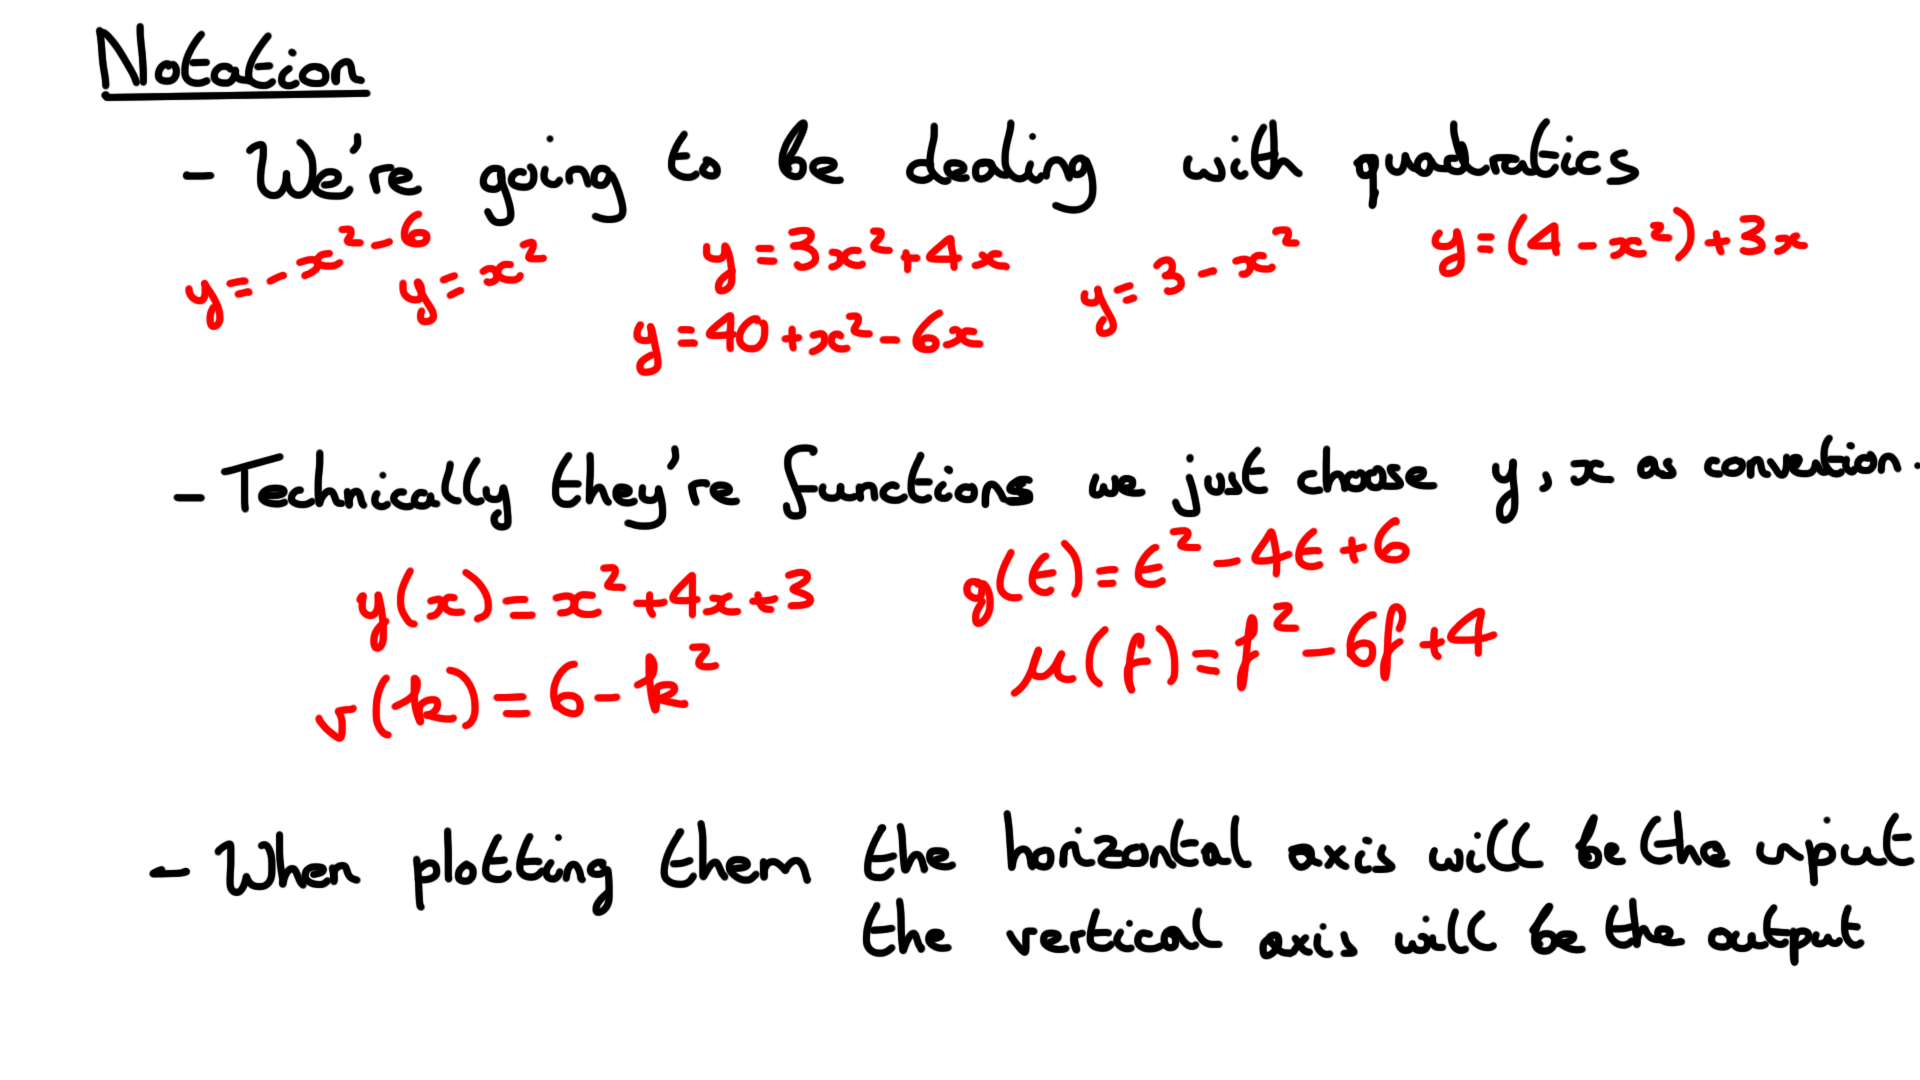 Notation
- We're going to be dealing with quadratics
y = -x² - 6 y = x² y = 3x² + 4x y = 3 - x² y = (4 - x²) + 3x
y = 40 + x² - 6x
- Technically they're functions we just choose y, x as convention.
y(x) = x² + 4x + 3 g(t) = t² - 4t + 6
v(k) = 6 - k² μ(f) = f² - 6f + 4
- When plotting them the horizontal axis will be the input
the vertical axis will be the output